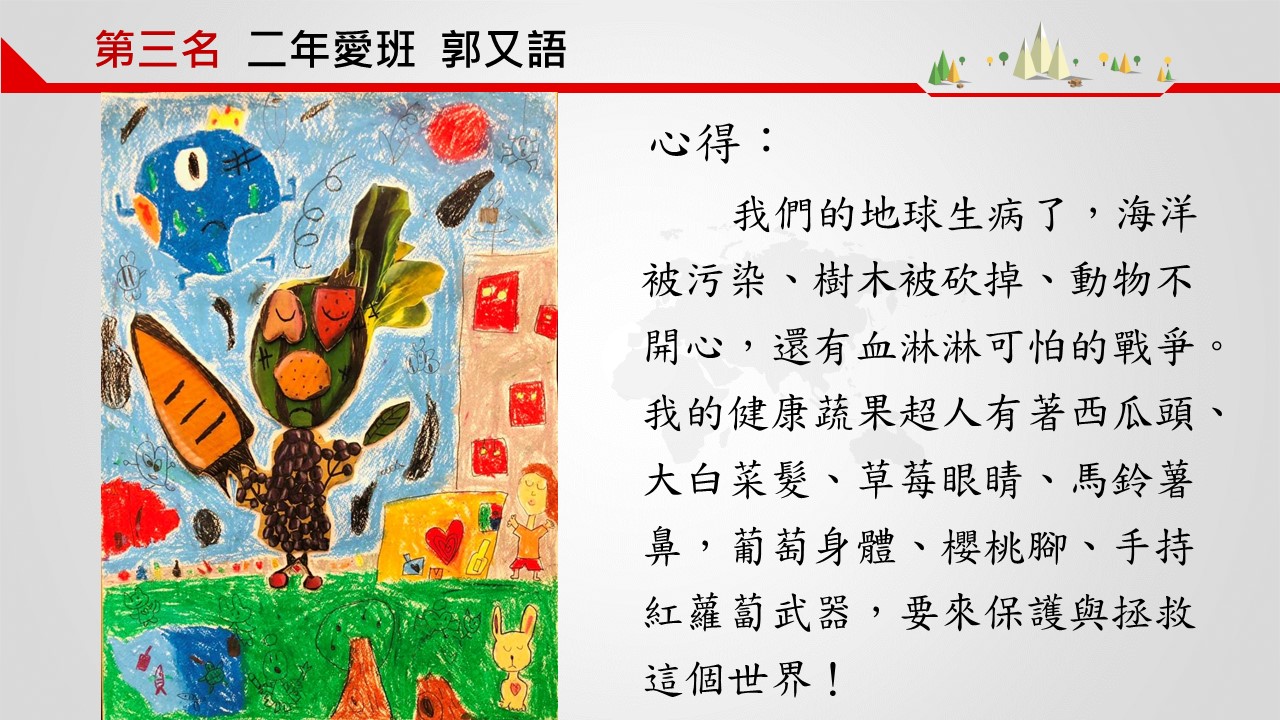 第三名 二年愛班 郭又語
心得：
我們的地球生病了，海洋
被污染、樹木被砍掉、動物不
開心，還有血淋淋可怕的戰爭。
我的健康蔬果超人有著西瓜頭、
大白菜髮、草莓眼睛、馬鈴薯
鼻，葡萄身體、櫻桃腳、手持
紅蘿蔔武器，要來保護與拯救
這個世界！